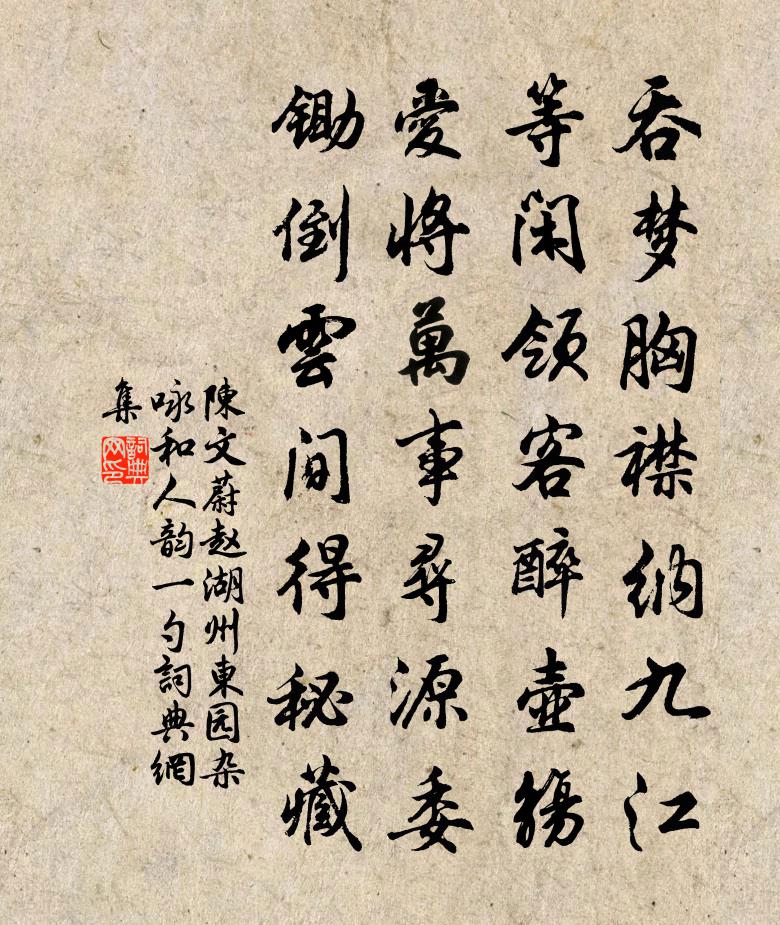 吞梦胸襟纳九江
等闲领客醉壶觞
爱将萬事寻源委
锄倒雲间得秘藏
陳文蔚赵湖州東园杂
咏和人韵一勺詞典網
集
詞典
网印